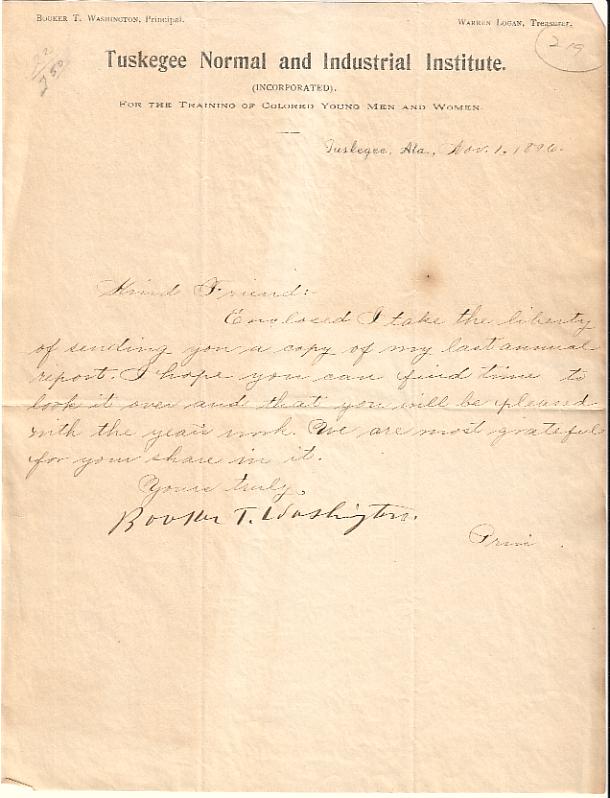 BOOKER T. WASHINGTON, Principal.
WARREN LOGAN, Treasurer.
219
Tuskegee Normal and Industrial Institute.
(INCORPORATED).
FOR THE TRAINING OF COLORED YOUNG MEN AND WOMEN.
Tuskegee, Ala., Nov. 1, 1896.
Kind Friend:
Enclosed I take the liberty
of sending you a copy of my last annual
report. I hope you can find time to
look it over and that you will be pleased
with the year's work. We are most grateful
for your share in it.
Yours truly,
Booker T. Washington.
Prin